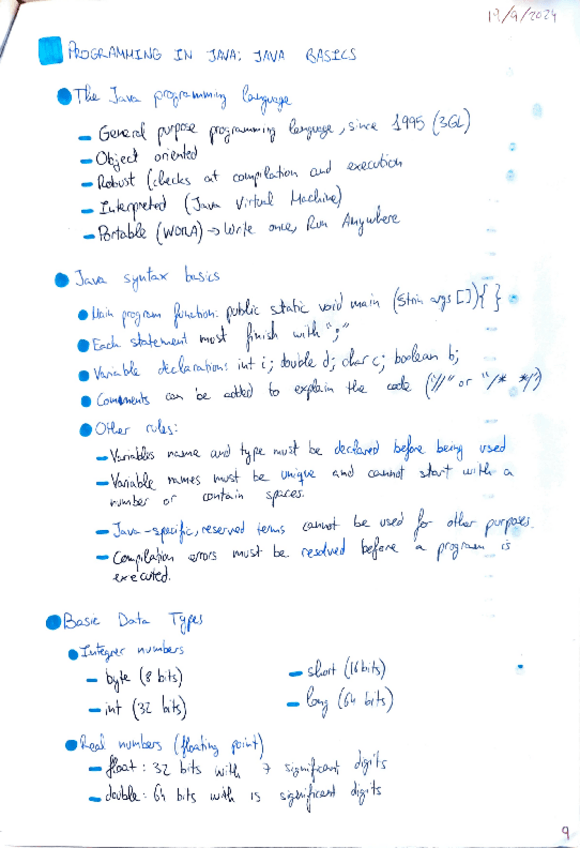 19/9/2024
PROGRAMMING IN JAVA: JAVA BASICS
The Java programming language
- General purpose programming language, since 1995 (3GL)
- Object oriented
- Robust (checks at compilation and execution
- Interpreted (Java Virtual Machine)
- Portable (WORA) → Write once, Run Anywhere
Java syntax basics
Main program function: public static void main (Strin args []){ }
Each statement must finish with ";"
Variable declaration: int i; double d; char c; boolean b;
Comments can be added to explain the code ("//" or "/* */")
Other rules:
- Variables name and type must be declared before being used
- Variable names must be unique and cannot start with a
number or contain spaces.
- Java-specific, reserved terms cannot be used for other purposes.
- Compilation errors must be resolved before a program is
executed.
Basic Data Types
Integer numbers
- byte (8 bits) - short (16 bits)
- int (32 bits) - long (64 bits)
Real numbers (floating point)
- float: 32 bits with 7 significant digits
- double: 64 bits with 15 significant digits
9